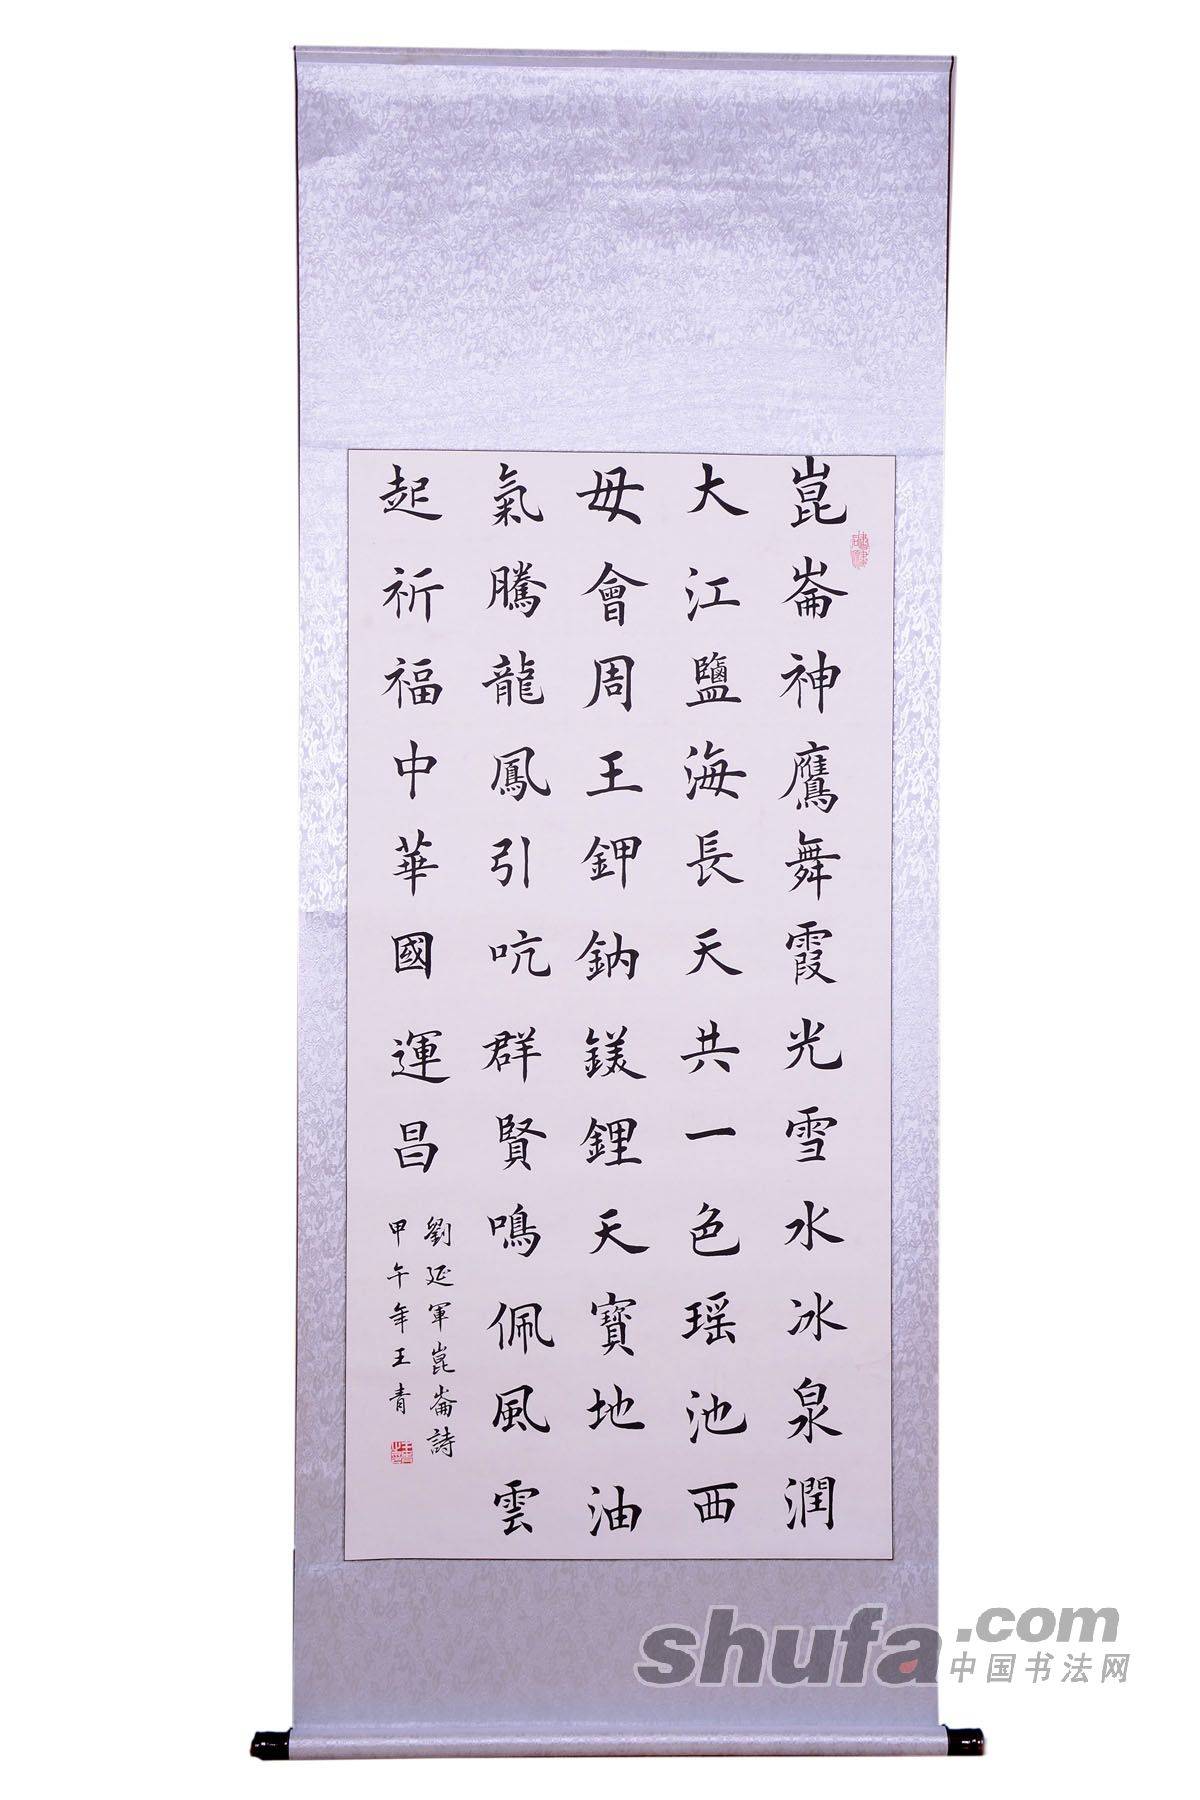 崑崙神鷹舞霞光雪水冰泉潤
大江鹽海長天共一色瑶池西
母會周王鉀鈉鎂鋰天寶地油
氣騰龍鳳引吭群賢鳴佩風雲
起祈福中華國運昌
劉延軍崑崙詩
甲午年王青
shufa.com
中国书法网